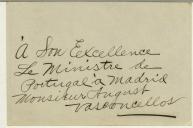 À Son Excellence
Le Ministre de
Portugal à Madrid
Monsieur August
Vasconcellos